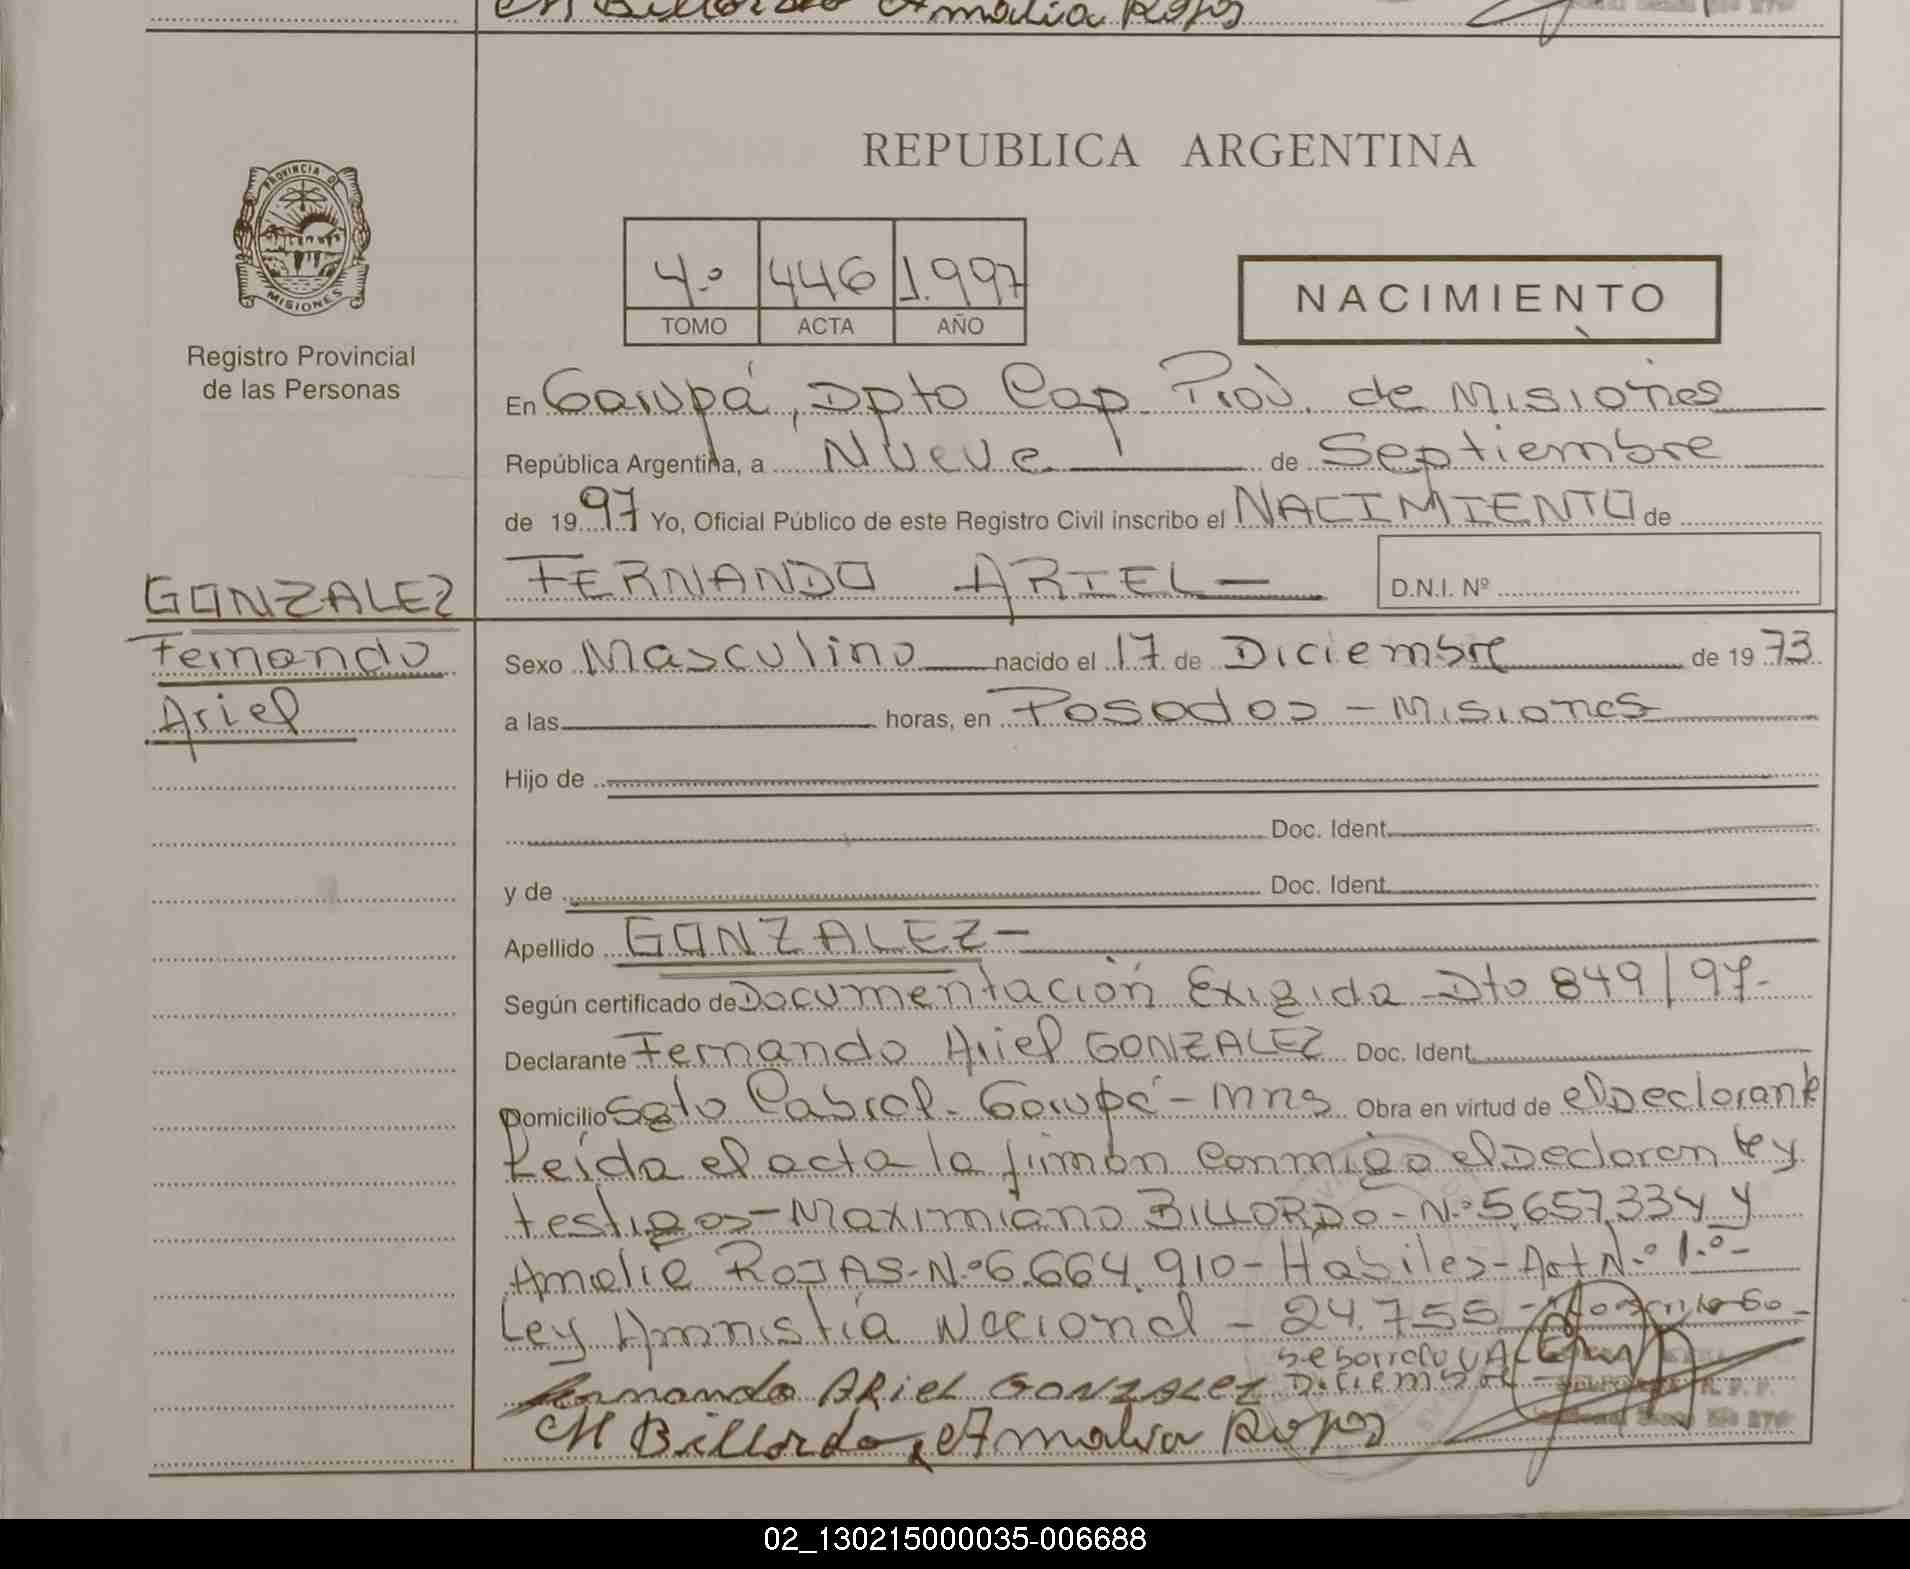 M Billordo Amalia Rojas
PROVINCIA DE
MISIONES
Registro Provincial
de las Personas
REPUBLICA ARGENTINA
4.º 446 1.997
TOMO ACTA AÑO
NACIMIENTO
En Garupá, Dpto Cap. Prov. de Misiones
República Argentina, a Nueve de Septiembre
de 1997 Yo, Oficial Público de este Registro Civil inscribo el NACIMIENTO de
FERNANDO ARIEL — D.N.I. Nº
GONZALEZ
Fernando
Ariel
Sexo Masculino nacido el 17 de Diciembre de 1973
a las horas, en Posadas - Misiones
Hijo de
Doc. Ident.
y de Doc. Ident.
Apellido GONZALEZ -
Según certificado de Documentación Exigida Dto 849/97-
Declarante Fernando Ariel GONZALEZ Doc. Ident.
Domicilio Sgto Cabral. Garupá - Mns Obra en virtud de el Declarante
Leída el acta la firman conmigo el Declarante y
testigos - Maximiano BILLORDO - N.º 5.657.334 y
Amalia ROJAS - N.º 6.664.910 - Habiles - Art N.º 1.º -
Ley Amnistía Nacional - 24.755 -
Diciembre
Fernando ARiEL GONZALEZ
M Billordo Amalia Rojas
02_130215000035-006688